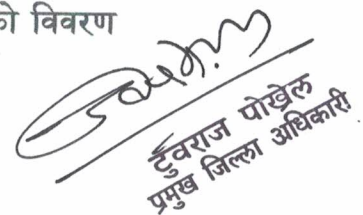 को विवरण
टुँवराज पोख्रेल
प्रमुख जिल्ला अधिकारी